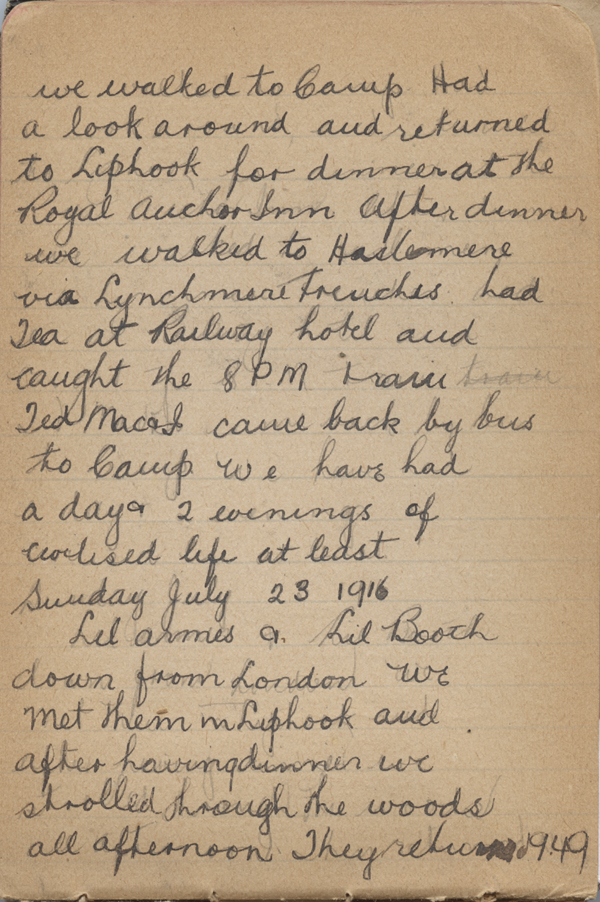 we walked to Camp Had
a look around and returned
to Liphook for dinner at the
Royal Anchor Inn After dinner
we walked to Haslemere
via Lynchmere Trenches had
Tea at Railway hotel and
caught the 8 PM train train
Ted Mac & I came back by bus
to Camp We have had
a day & 2 evenings of
civilised life at least
Sunday July 23 1916
Lil armes & Lil Booth
down from London We
met them in Liphook and
after having dinner we
strolled through the woods
all afternoon They returned 19.49